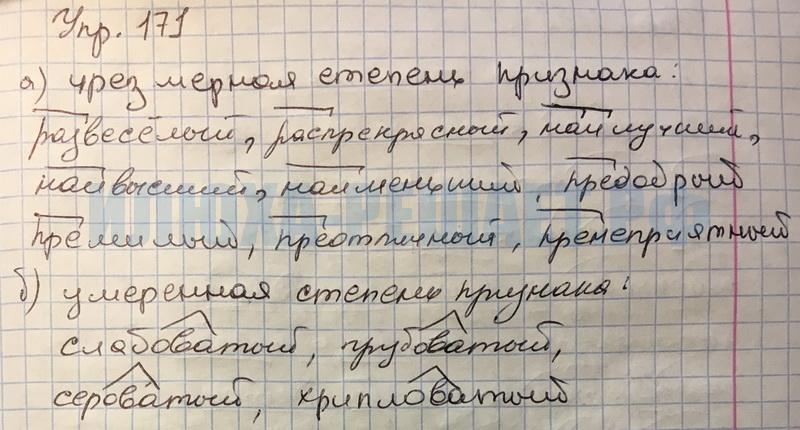 Упр. 171
а) чрезмерная степень признака:
развесёлый, распрекрасный, наилучший,
наивысший, наименьший, предобрый
премилый, преотличный, пренеприятный
б) умеренная степень признака:
слабоватый, грубоватый,
сероватый, хрипловатый